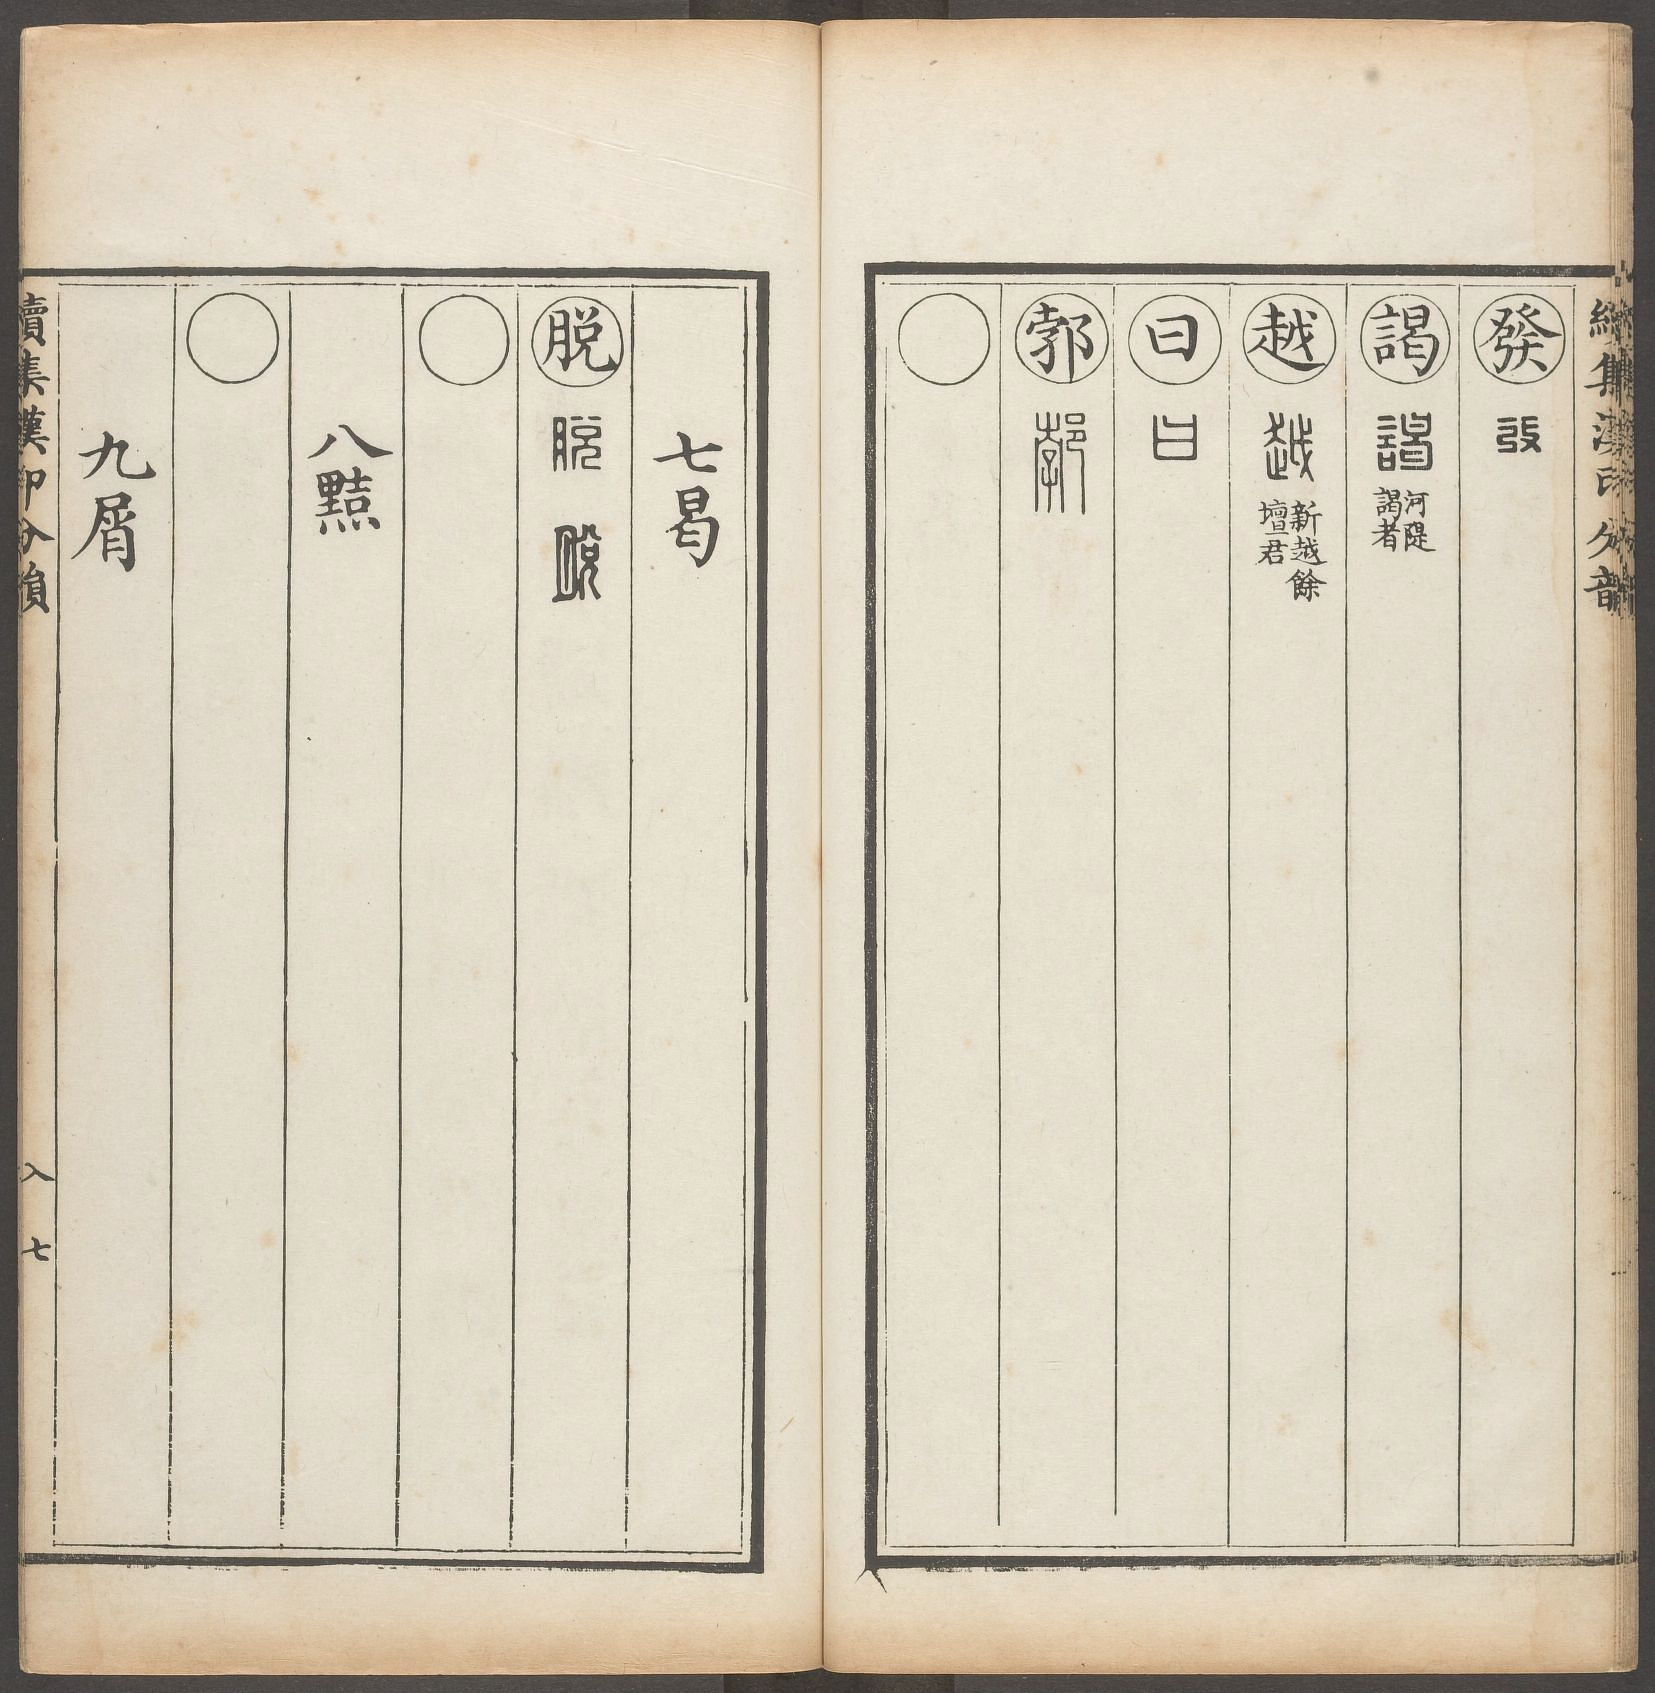 續集漢印分韻
發 發
謁 謁 河隄謁者
越 越 新越餘壇君
曰 曰
郭 郭
七曷
脫 脫 脫
八黠
九屑
續集漢印分韻
入 七